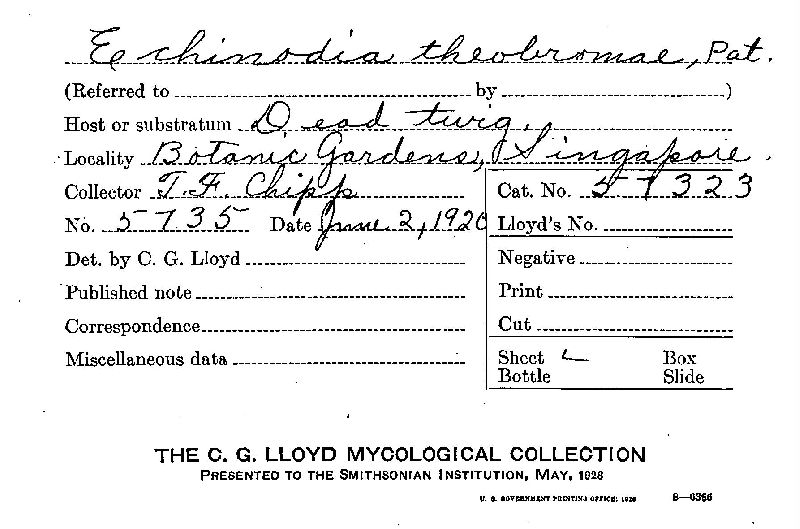 Echinodia theobromae, Pat.
(Referred to by )
Host or substratum Dead twig.
Locality Botanic Gardens, Singapore.
Collector T. F. Chipp Cat. No. 57323
No. 5735 Date June 2, 1920 Lloyd's No.
Det. by C. G. Lloyd Negative
Published note Print
Correspondence Cut
Miscellaneous data Sheet Box
Bottle Slide
THE C. G. LLOYD MYCOLOGICAL COLLECTION
PRESENTED TO THE SMITHSONIAN INSTITUTION, MAY, 1928
U. S. GOVERNMENT PRINTING OFFICE: 1928 8—6356